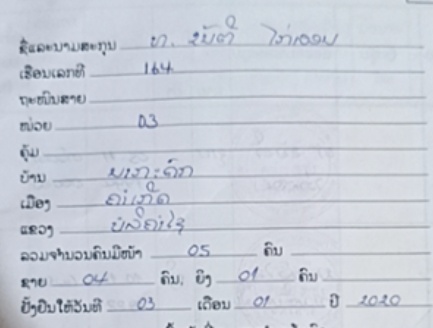 ຊື່ແລະນາມສະກຸນ ທ.
ເຮືອນເລກທີ 164
ຖະໜົນສາຍ
ໜ່ວຍ 03
ຄຸ້ມ
ບ້ານ
ເມືອງ ຄຳເກີດ
ແຂວງ ບໍລິຄຳໄຊ
ລວມຈຳນວນຄົນມີໜ້າ 05 ຄົນ
ຊາຍ 04 ຄົນ, ຍິງ 01 ຄົນ
ຢັ້ງຢືນໃຫ້ວັນທີ 03 ເດືອນ 01 ປີ 2020